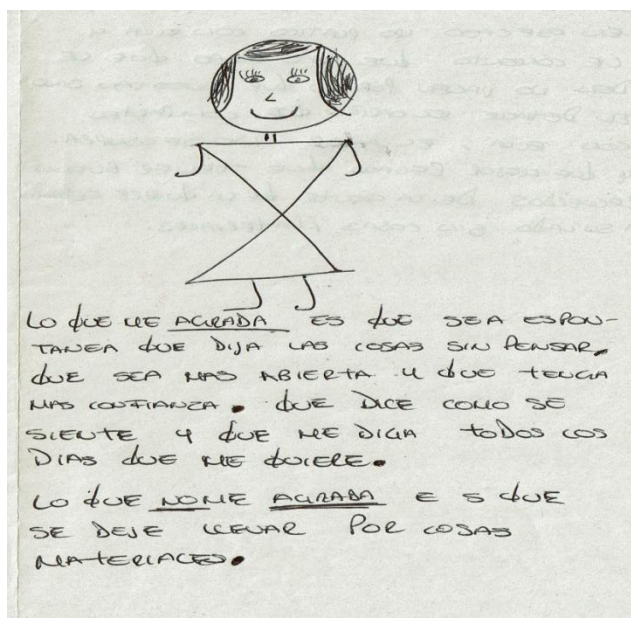 LO QUE ME AGRADA ES QUE SEA ESPON-
TANEA QUE DIJA LAS COSAS SIN PENSAR,
QUE SEA MAS ABIERTA Y QUE TENGA
MAS CONFIANZA. QUE DICE COMO SE
SIENTE Y QUE ME DIGA TODOS LOS
DIAS QUE ME QUIERE.
LO QUE NO ME AGRADA ES QUE
SE DEJE LLEVAR POR COSAS
MATERIALES.